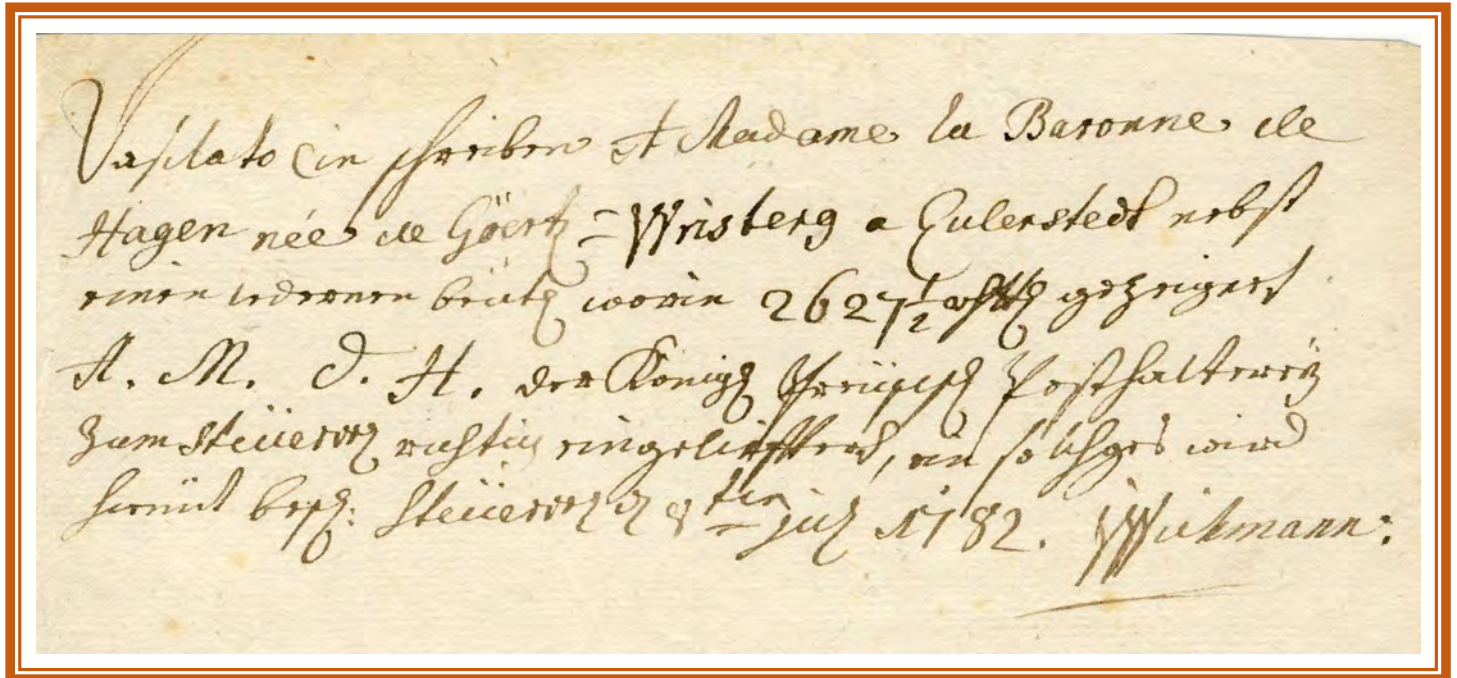 Dato ein schreiben A Madame la Baronne de
Hagen née de Göertz = Wrisberg a Eulerstedt nebst
einen ledernen beütel worin 2627½ gezeignet
A. M. d. H. der Königl Preüssch Posthalterey
zum Steüerwal richtig eingelieffert, ein solches wird
hiemit besch: Steüerwal d 8ten july 1782. Wickmann: